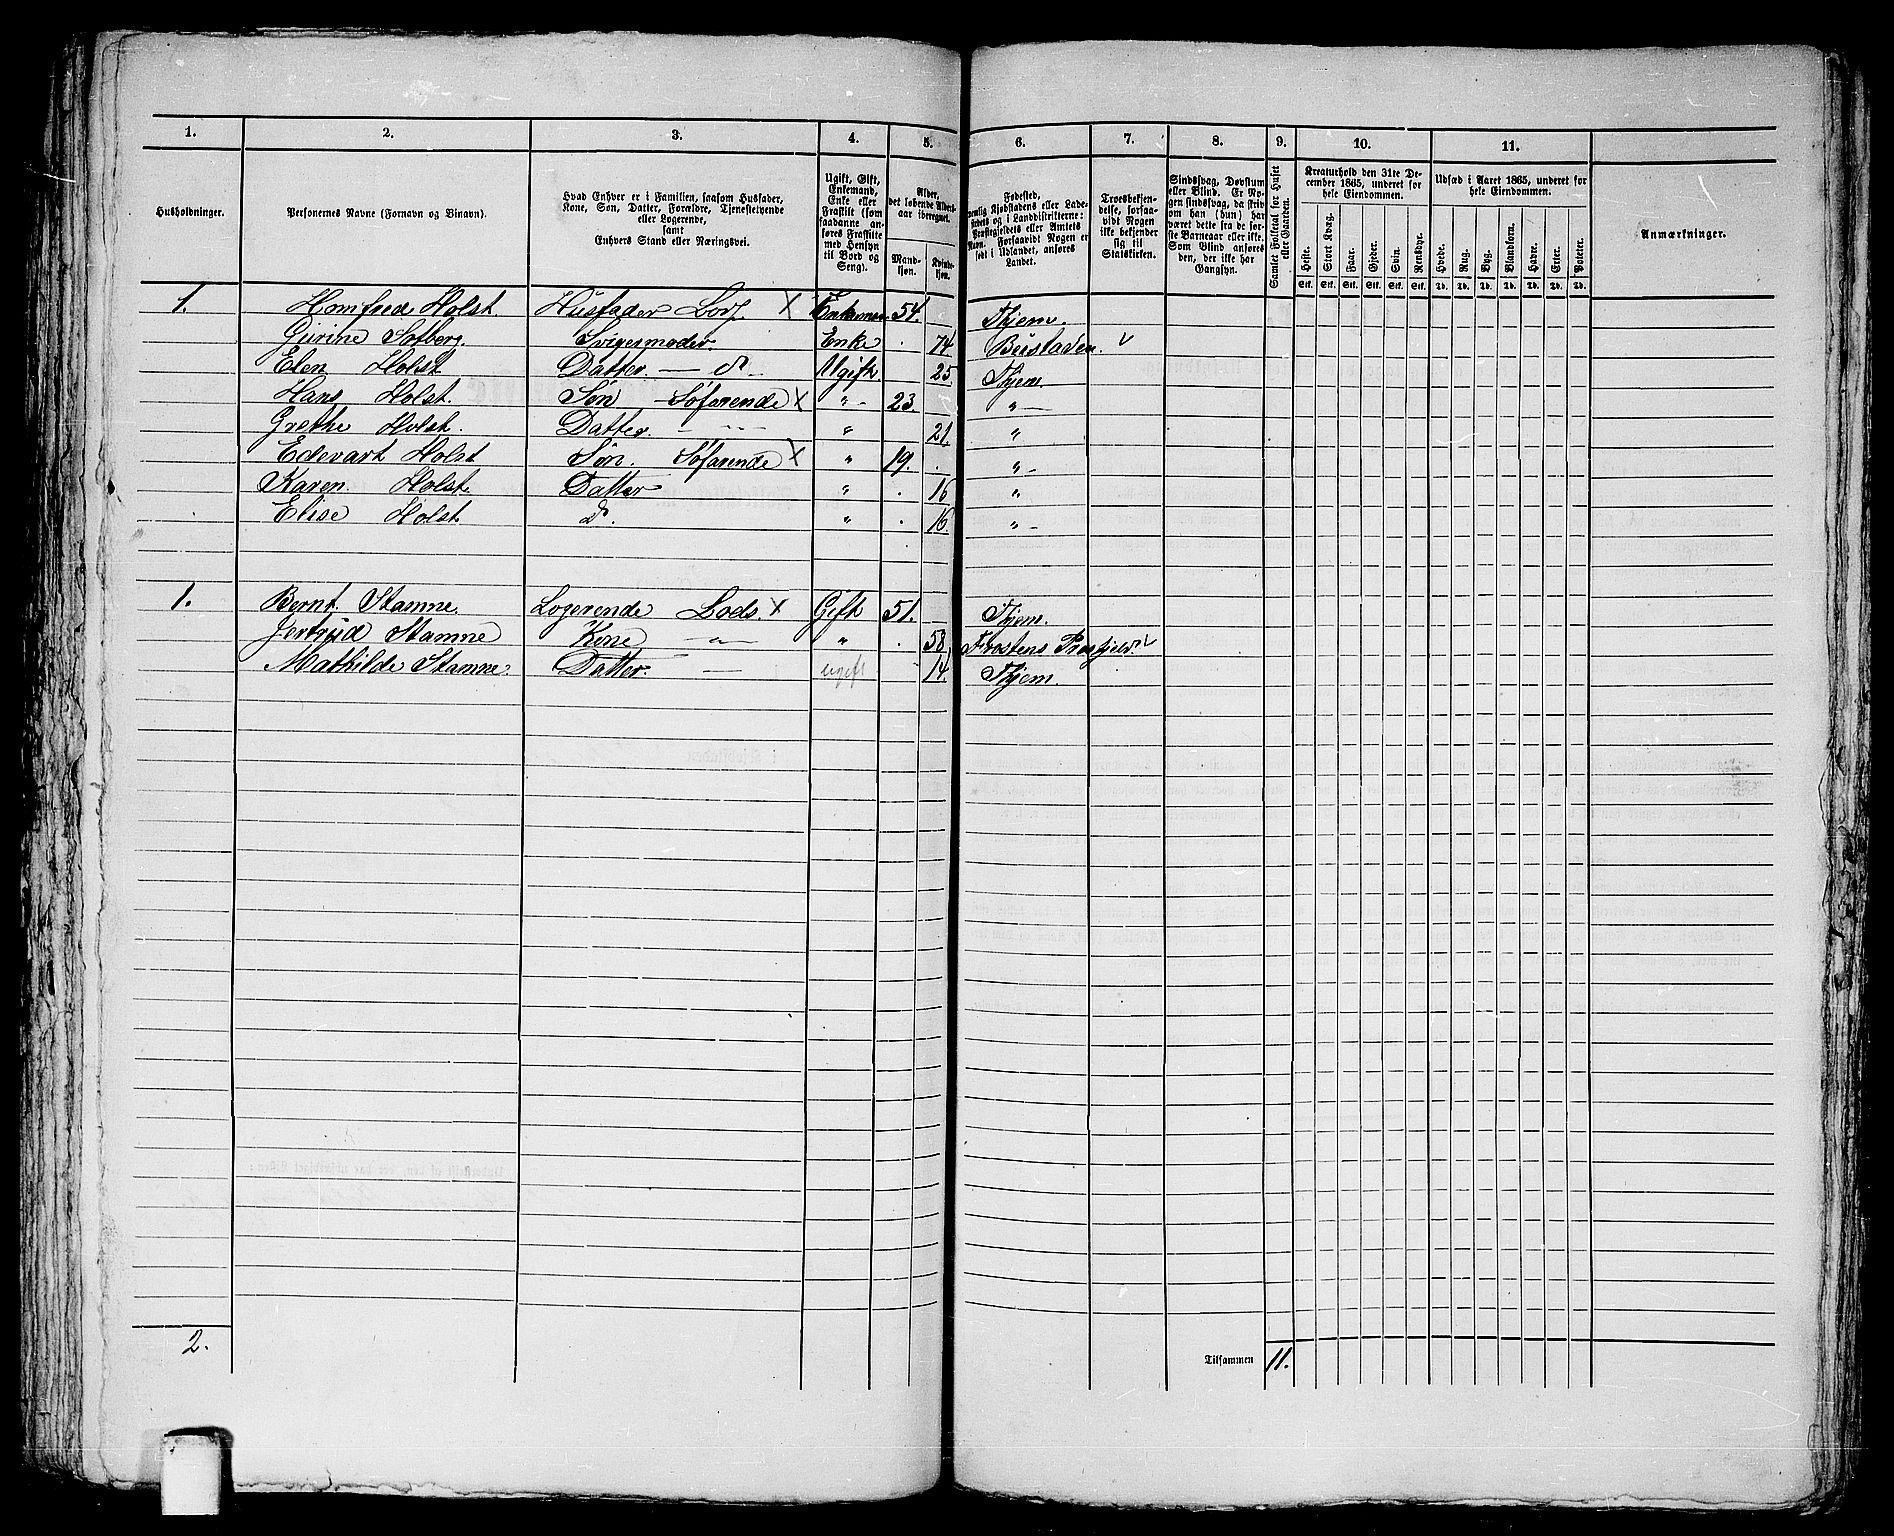 1. 2. 3. 4. 5. 6. 7. 8. 9. 10. 11.
Husholdninger.
Personernes Navne (Fornavn og Binavn).
Hvad Enhver er i Familien, saasom Husfader,
Kone, Søn, Datter, Forældre, Tjenestetyende
eller Logerende,
samt
Enhvers Stand eller Næringsvei.
Ugift, Gift,
Enkemand,
Enke eller
Fraskilt (som
saadanne an-
føres Fraskilte
med Hensyn
til Bord og
Seng).
Alder,
det løbende Alders-
aar iberegnet.
Mand-
kjøn.
Kvinde-
kjøn.
Fødested,
nemlig Kjøbstadens eller Lade-
stedets og i Landdistrikterne:
Præstegjeldets eller Amtets
Navn. Forsaavidt Nogen er
født i Udlandet, anføres
Landet.
Troesbekjen-
delse, forsaa-
vidt Nogen
ikke bekjender
sig til
Statskirken.
Sindssvag, Døvstum
eller Blind. Er No-
gen sindssvag, da skriv
om han (hun) har
været dette fra de før-
ste Barneaar eller ikke.
Som Blind anføres
den, der ikke har
Gangsyn.
Samlet Folketal for Huset
eller Gaarden.
Kreaturhold den 31te De-
cember 1865, underet for
hele Eiendommen.
Heste. Stort Kvæg. Faar. Gjeder. Svin. Rensdyr.
Stk. Stk. Stk. Stk. Stk. Stk.
Udsæd i Aaret 1865, underet for
hele Eiendommen.
Hvede. Rug. Byg. Blandkorn. Havre. Erter. Poteter.
Td. Td. Td. Td. Td. Td. Td.
Anmærkninger.
1. Holst Husfader X 54. Thjem.
Solberg. Svigermoder. Enke . 74. Beistaden. v
Elen Holst Datter — d — Ugift. 25 Thjem
Hans Holst. Søn - Søfarende X " - 23. "—
Grethe Holst. Datter. — " — " 21. "
Edevart Holst Søn. Søfarende X " 19. . "-
Karen. Holst. Datter " . 16 "
Elise Holst d. " . 16. "-
1. Bernt. Stamne. Logerende Lods. X Gift 51. Thjem.
Jertrud Stamne Kone " " . 58 Frostens Præstgield v
Mathilde Stamne. Datter. — ugift - 14. Thjem.
2. Tilsammen 11.